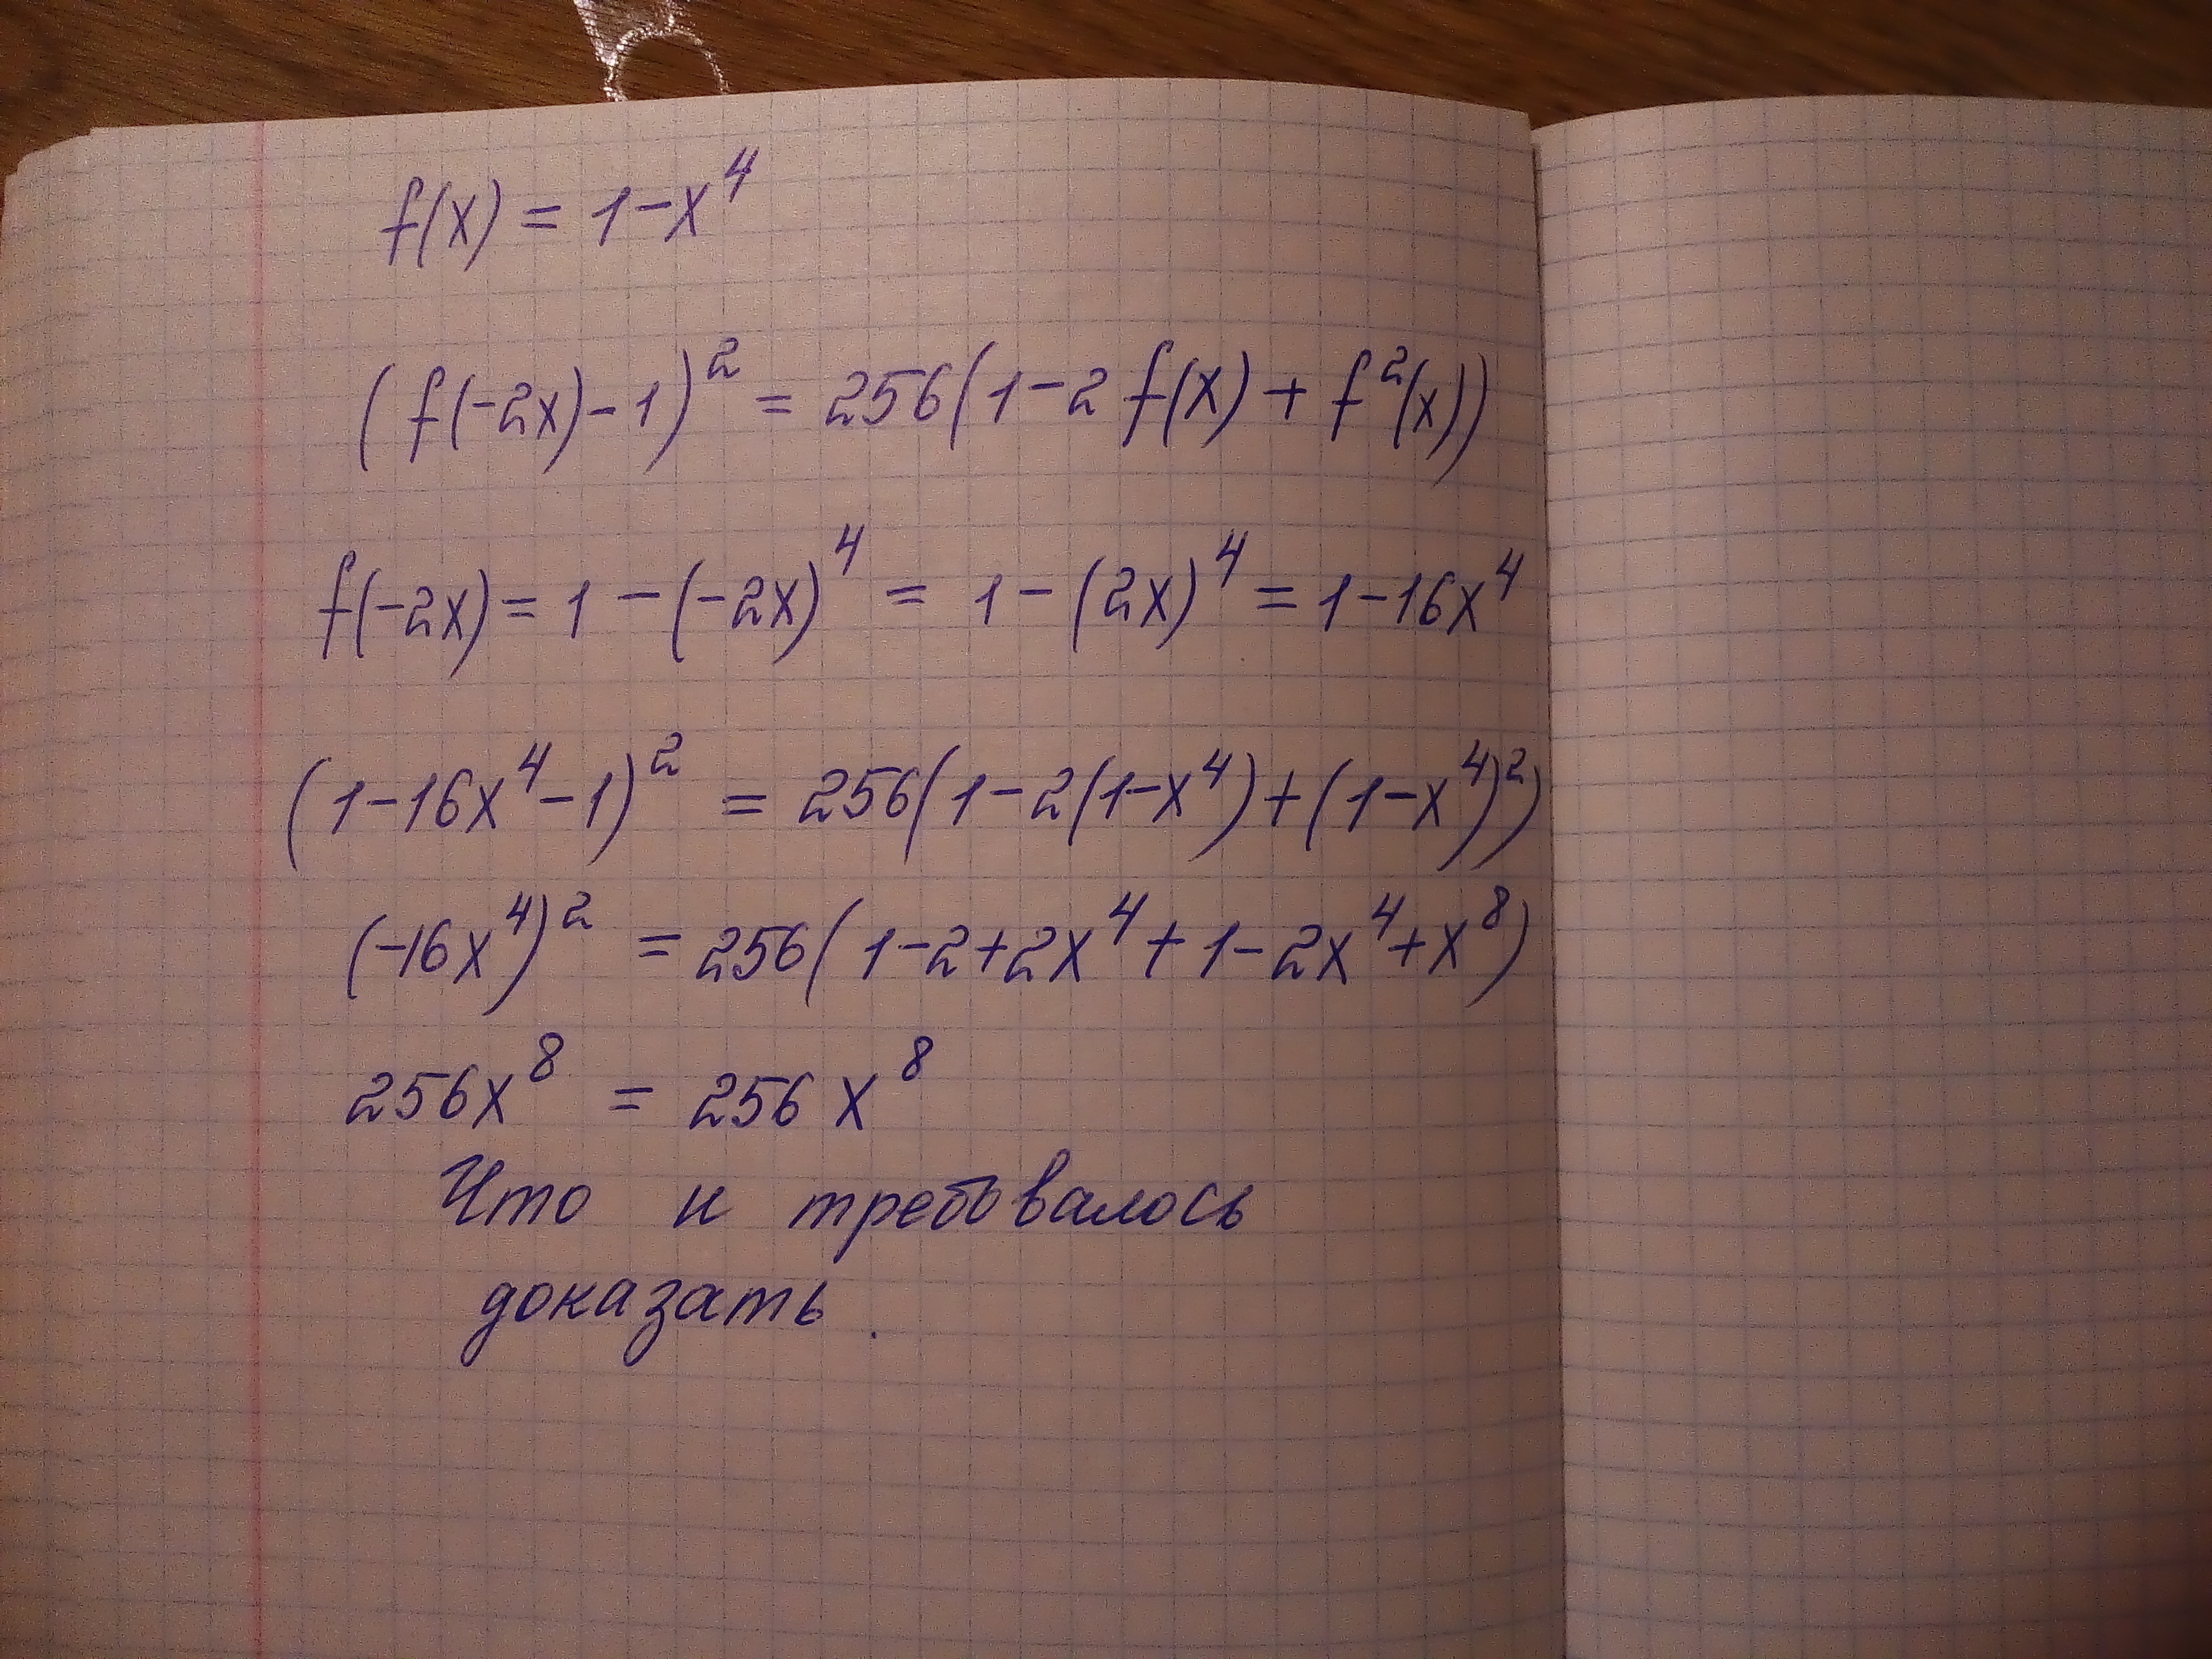 f(x) = 1-x⁴
(f(-2x)-1)² = 256(1-2f(x)+f²(x))
f(-2x) = 1-(-2x)⁴ = 1-(2x)⁴ = 1-16x⁴
(1-16x⁴-1)² = 256(1-2(1-x⁴)+(1-x⁴)²)
(-16x⁴)² = 256(1-2+2x⁴+1-2x⁴+x⁸)
256x⁸ = 256x⁸
Что и требовалось
доказать.